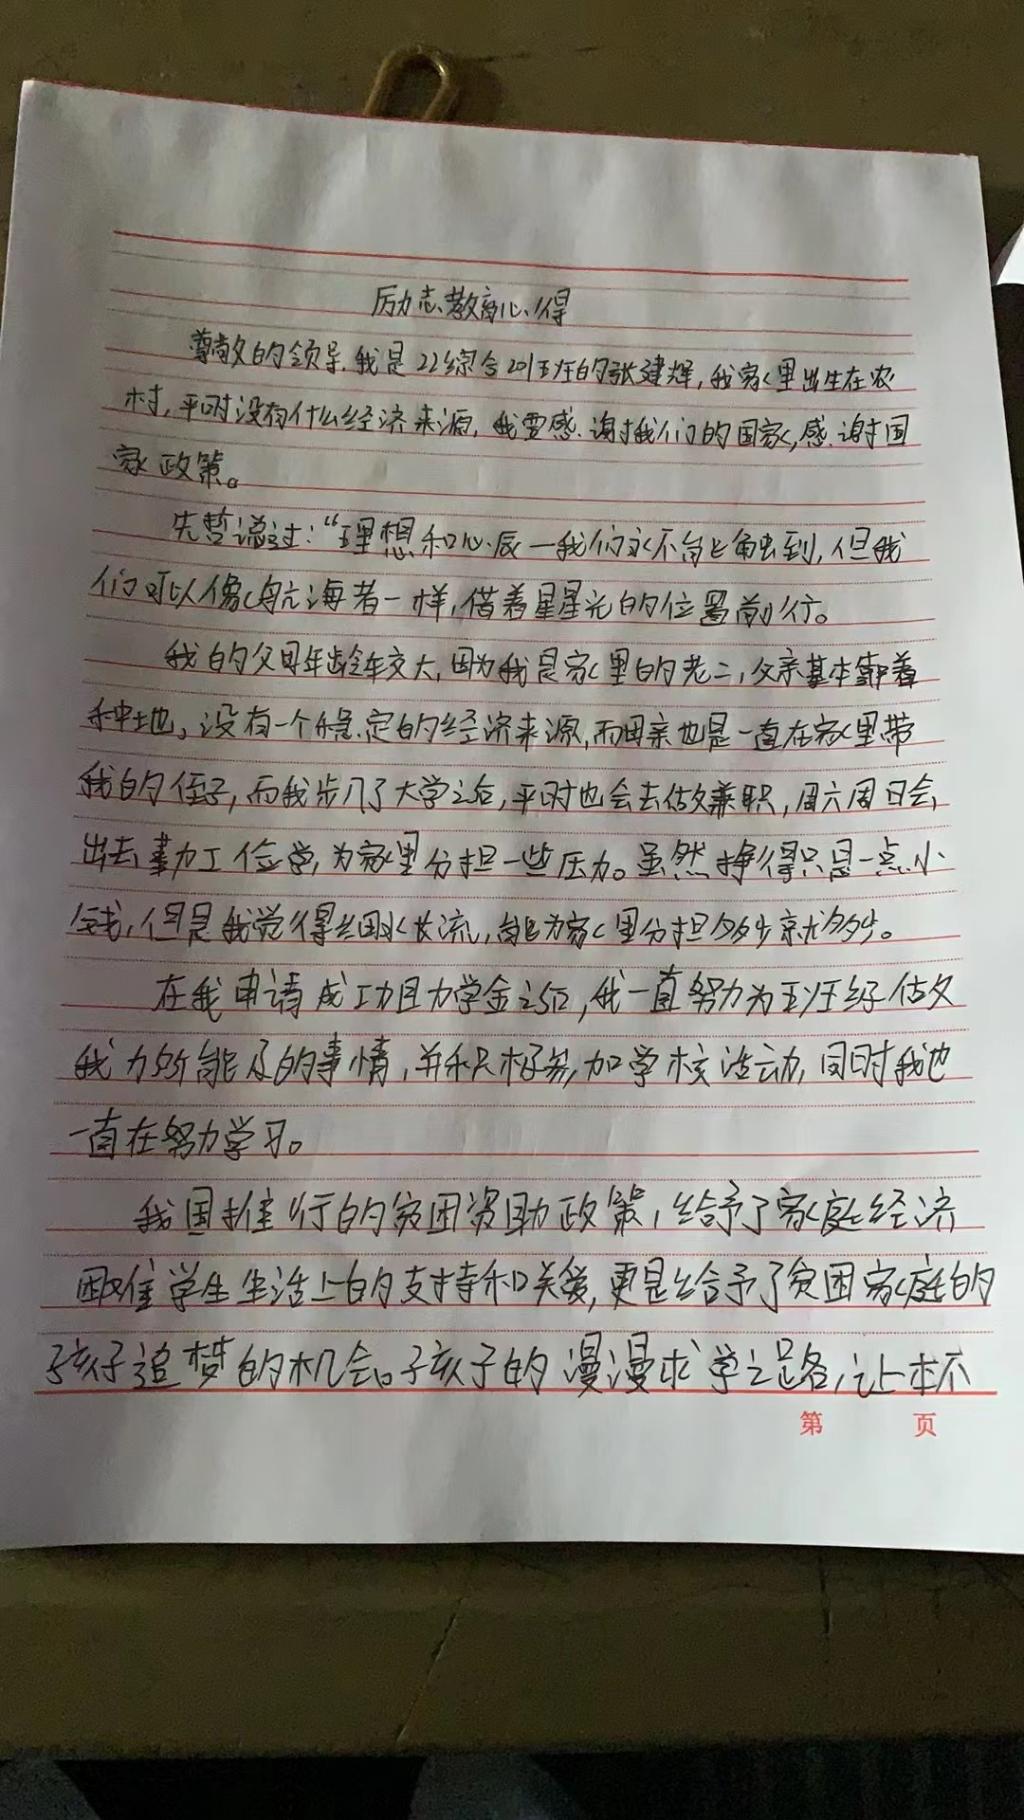 励志教育心得
尊敬的领导，我是22综合201班的张建辉，我家里出生在农
村，平时没有什么经济来源，我要感谢我们的国家，感谢国
家政策。
先哲说过：“理想和心辰一我们永不能触到，但我
们可以像航海者一样，借着星星光的位置前行。
我的父母年龄较大，因为我是家里的老二，父亲基本靠着
种地，没有一个稳定的经济来源，而母亲也是一直在家里带
我的侄子，而我步入了大学之后，平时也会去做兼职，周六周日会
出去勤工俭学，为家里分担一些压力。虽然挣得只是一点小
钱，但是我觉得细水长流，能为家里分担多少就多少。
在我申请成功助学金之后，我一直努力为班级做
我力所能及的事情，并积极参加学校活动，同时我也
一直在努力学习。
我国推行的贫困资助政策，给予了家庭经济
困难学生生活上的支持和关爱，更是给予了贫困家庭的
孩子追梦的机会。孩子的漫漫求学之路，让本不
第 页